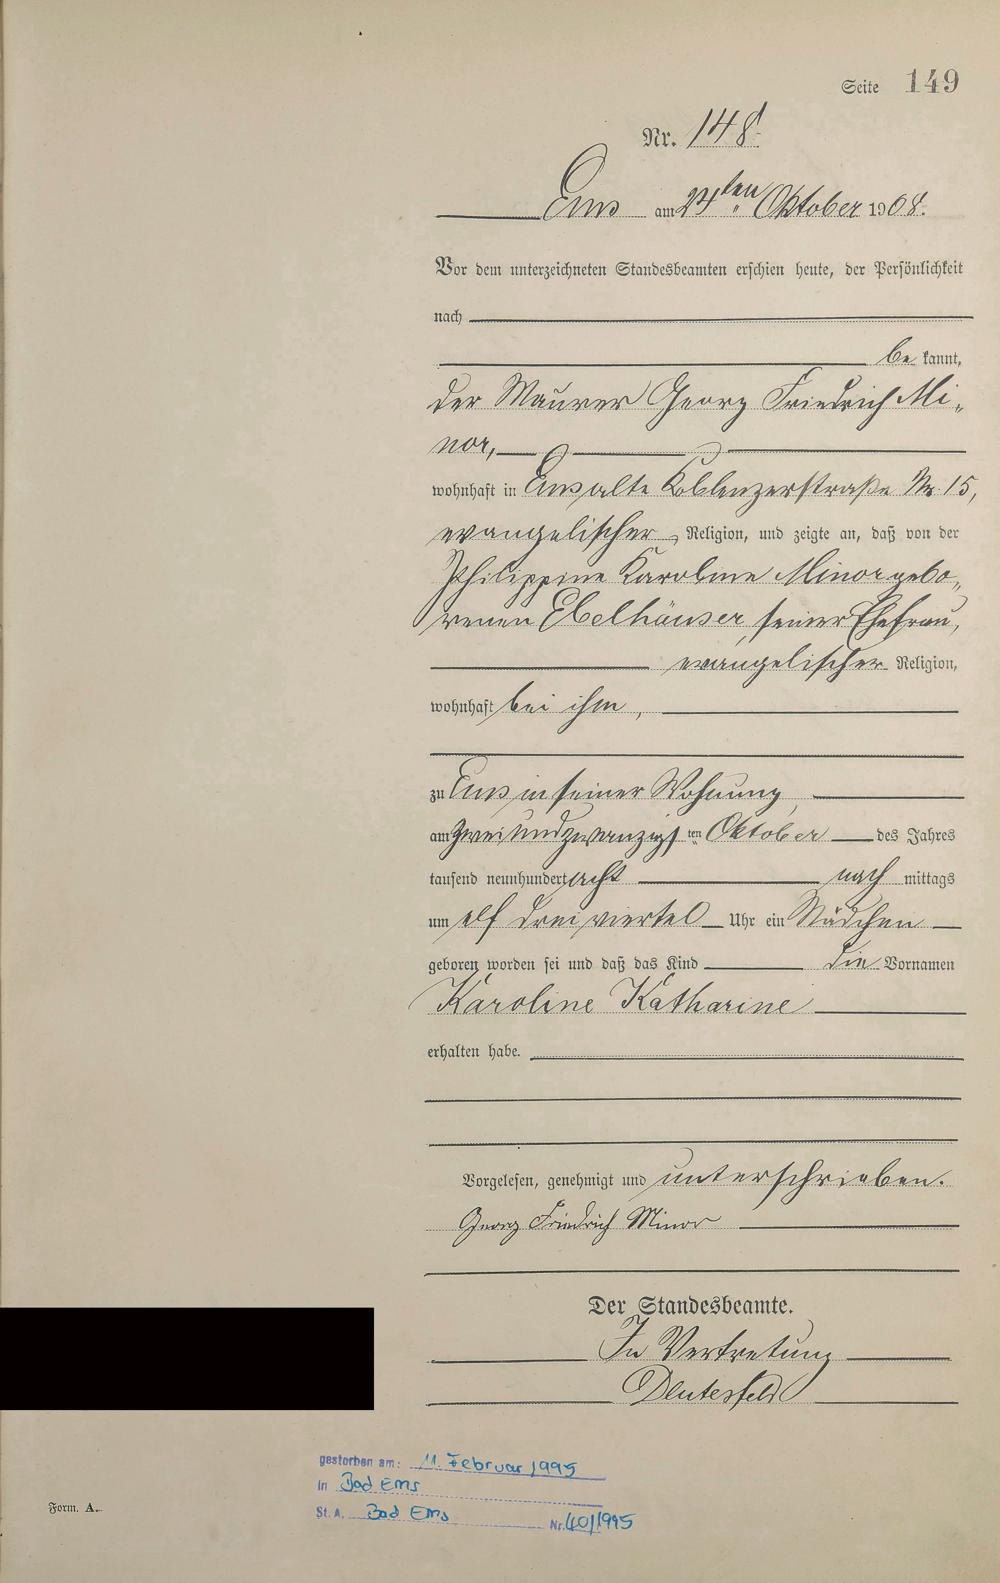 Seite 149
Nr. 148.
Ems am 24ten Oktober 1908.
Vor dem unterzeichneten Standesbeamten erschien heute, der Persönlichkeit
nach
be kannt,
der Maurer Georg Friedrich Mi-
nor,
wohnhaft in Ems alte Koblenzerstraße Nr. 15,
evangelischer Religion, und zeigte an, daß von der
Philippine Karoline Minor gebo-
renen Ebelhäuser, seiner Ehefrau,
evangelischer Religion,
wohnhaft bei ihm,
zu Ems in seiner Wohnung,
am zweiundzwanzigsten Oktober des Jahres
tausend neunhundert acht nach mittags
um elf drei viertel Uhr ein Mädchen
geboren worden sei und daß das Kind die Vornamen
Karoline Katharine
erhalten habe.
Vorgelesen, genehmigt und unterschrieben.
Georg Friedrich Minor
Der Standesbeamte.
In Vertretung
gestorben am: 11. Februar 1995
in Bad Ems
St. A. Bad Ems Nr. 40/1995
Form. A.